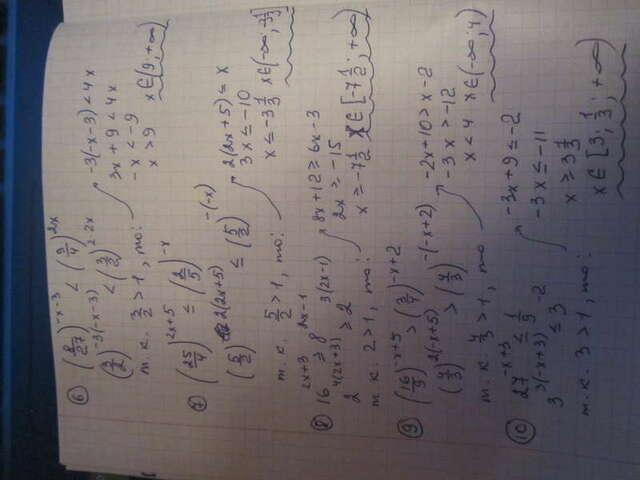 6) (8/27)^(-x-3) < (9/4)^(2x)
(3/2)^(-3(-x-3)) < (3/2)^(2·2x)
т.к. 3/2 > 1, то:
-3(-x-3) < 4x
3x + 9 < 4x
-x < -9
x > 9 x ∈ (9; +∞)
7) (25/4)^(2x+5) ≤ (2/5)^(-x)
(5/2)^(2(2x+5)) ≤ (5/2)^(-(-x))
т.к. 5/2 > 1, то:
2(2x+5) ≤ x
3x ≤ -10
x ≤ -3 1/3 x ∈ (-∞; -3 1/3]
8) 16^(2x+3) ≥ 8^(2x-1)
2^(4(2x+3)) ≥ 2^(3(2x-1))
т.к. 2 > 1, то:
8x + 12 ≥ 6x - 3
2x ≥ -15
x ≥ -7 1/2 x ∈ [-7 1/2; +∞)
9) (16/9)^(-x+5) > (3/4)^(-x+2)
(4/3)^(2(-x+5)) > (4/3)^(-(-x+2))
т.к. 4/3 > 1, то
-2x + 10 > x - 2
-3x > -12
x < 4 x ∈ (-∞; 4)
10) 27^(-x+3) ≤ 1/9
3^(3(-x+3)) ≤ 3^(-2)
т.к. 3 > 1, то:
-3x + 9 ≤ -2
-3x ≤ -11
x ≥ 3 1/3
x ∈ [3; 1/3; +∞)